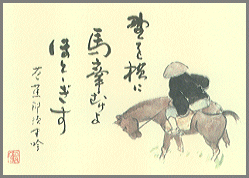 野を横に
馬牽むけよ
ほとゝぎす
芭蕉 那須 吟